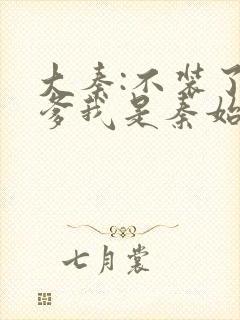 大秦:不装了
爹我是秦始
七月裳